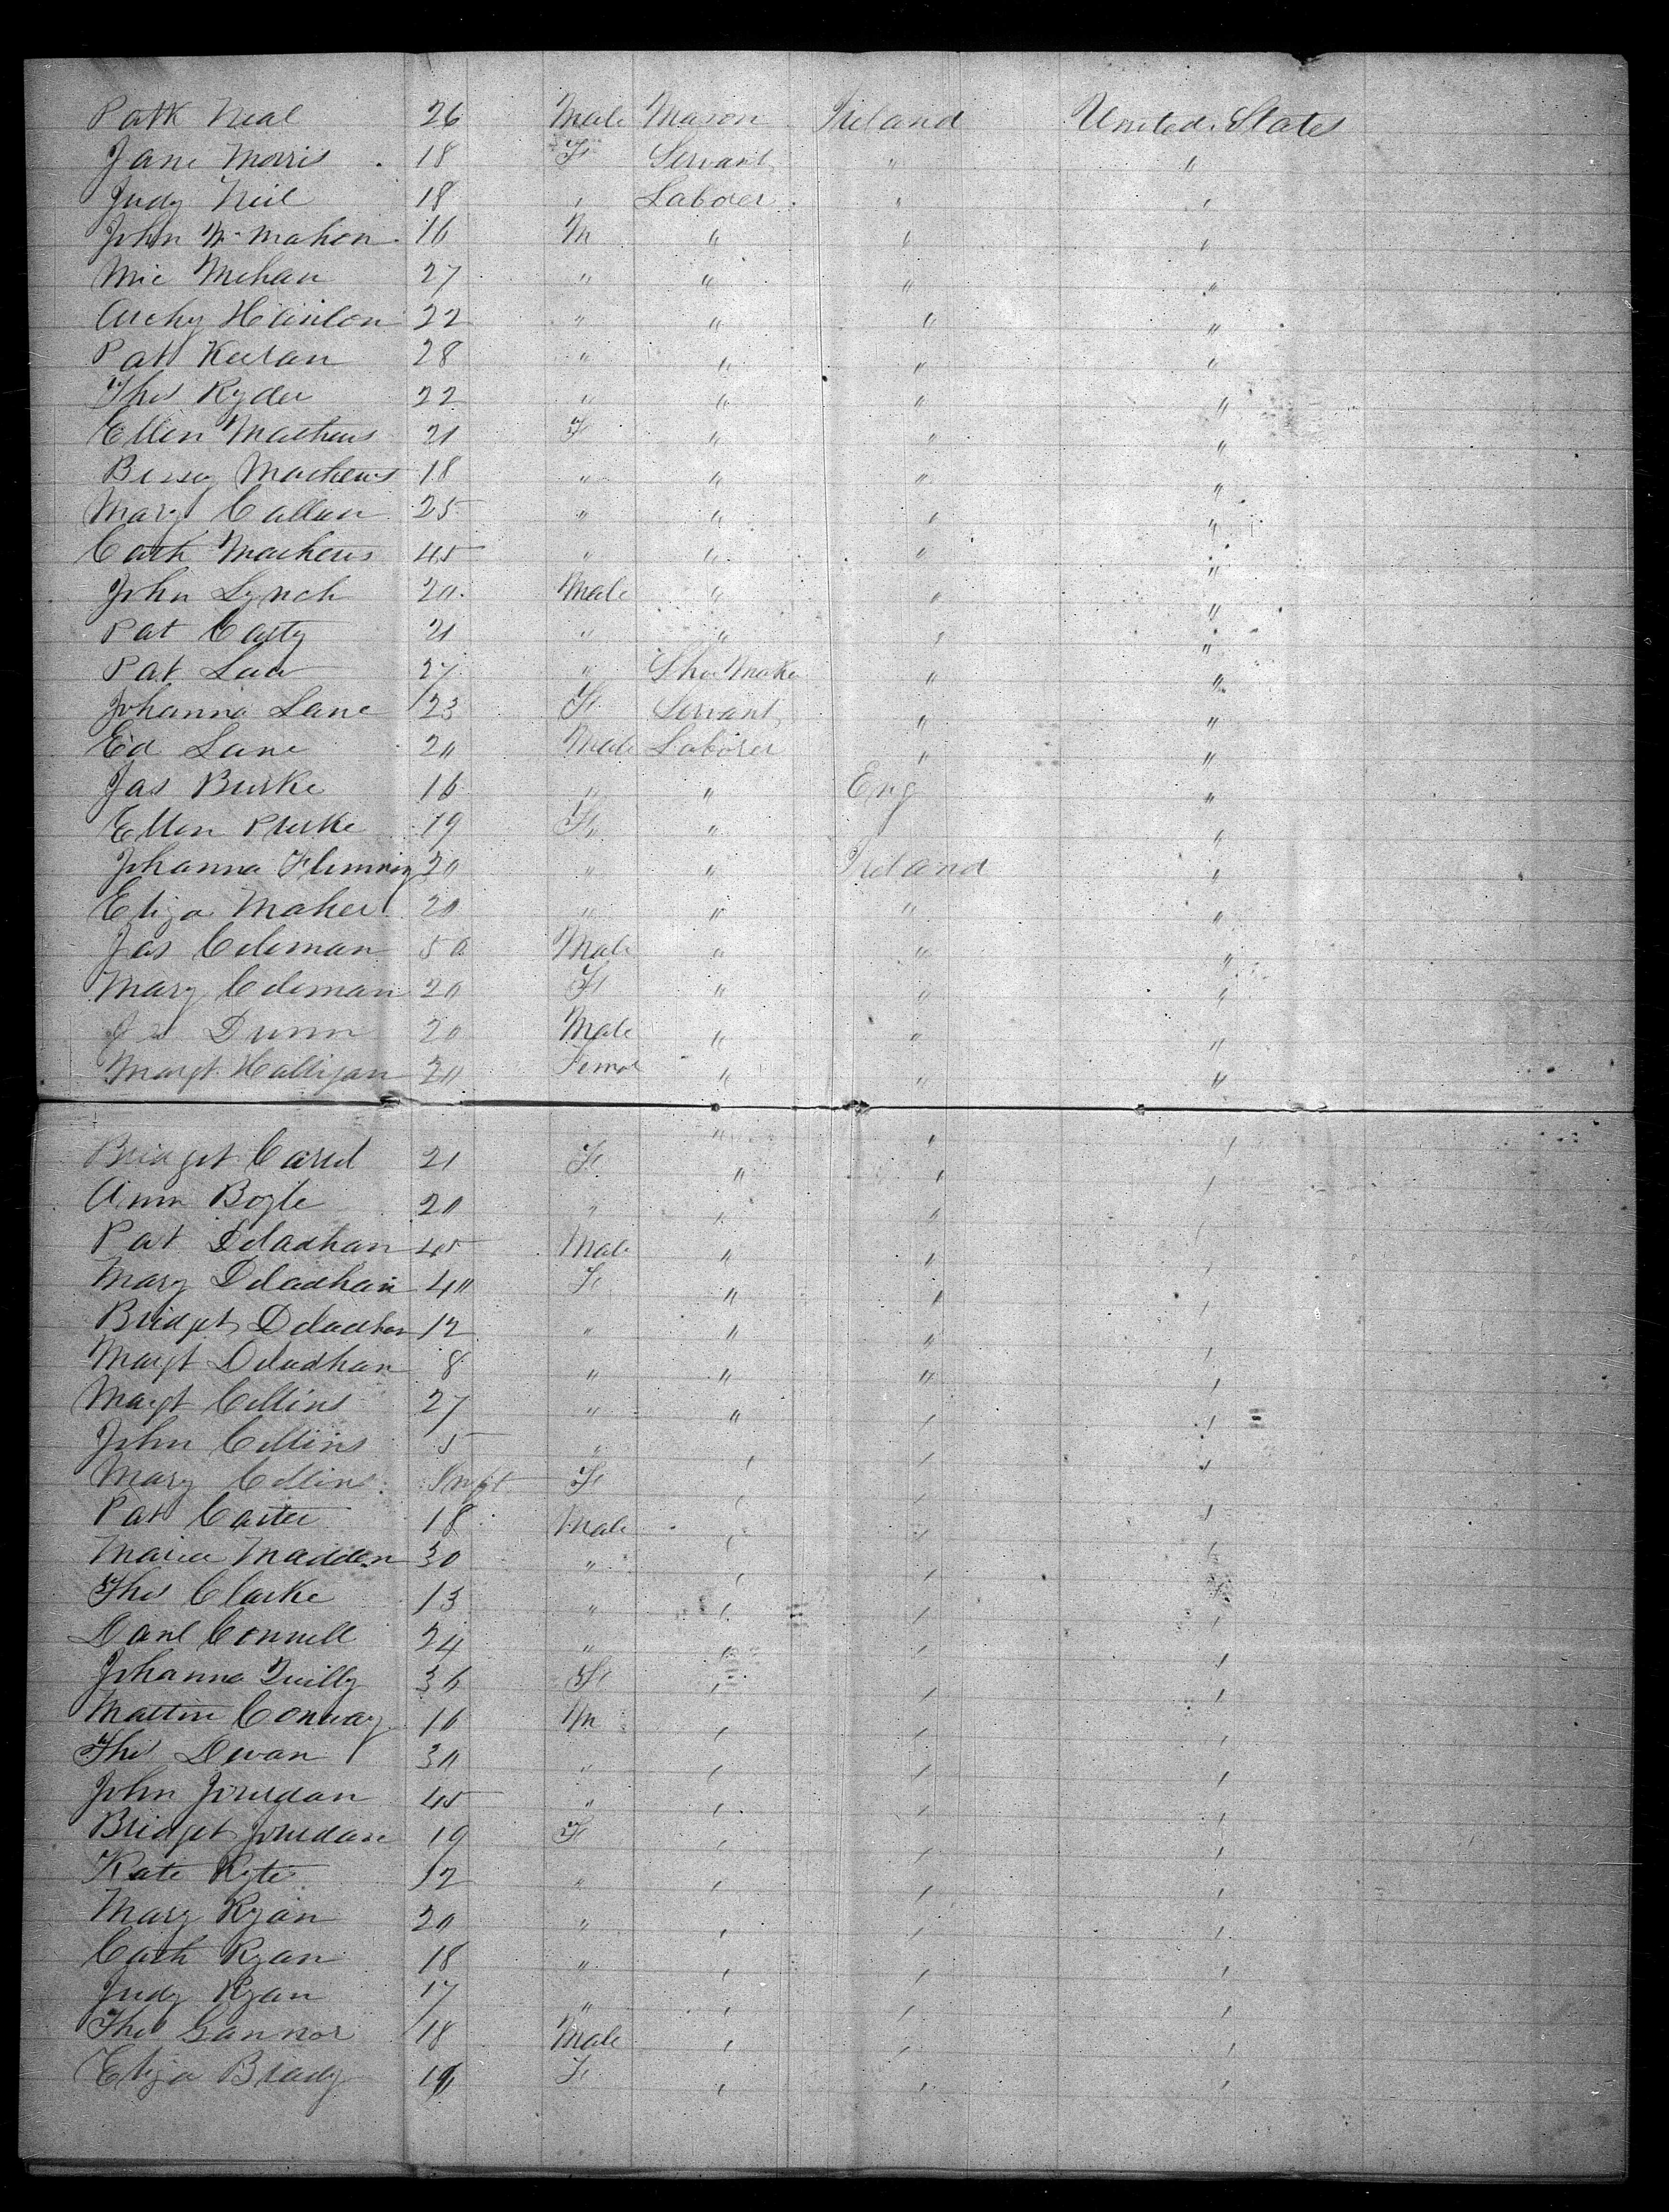 Patk Neal 26 Male Mason Ireland United States
Jane Morris 18 F Servant " "
Judy Neil 18 " Laborer " "
John McMahon 16 M " " "
Mic Mehan 27 " " " "
Archy Hanlon 22 " " " "
Pat Keeran 28 " " " "
Thos Ryder 22 " " " "
Ellen Mathews 21 F " " "
Bessy Mathews 18 " " " "
Mary Callan 25 " " " "
Cath Mathews 45 " " " "
John Lynch 20 Male " " "
Pat Carty 21 " " " "
Pat 27 " Shoe Maker " "
Johanna Lane 23 F Servant " "
Ed Lane 20 Male Laborer " "
Jas Burke 16 " " Eng "
Ellen Burke 19 F " " "
Johanna Flemming 20 " " Ireland "
Eliza Maher 20 " " " "
Jas Coleman 50 Male " " "
Mary Coleman 20 F " " "
Dunn 20 Male " " "
Margt Halligan 20 Femal " " "
" " "
Bridget 21 F " " "
Ann Boyle 20 " " " "
Pat Deladhan 45 Male " " "
Mary Deladhan 40 F " " "
Bridget Deladhan 12 " " " "
Margt Deladhan 8 " " " "
Margt Collins 27 " " " "
John Collins 5 " " " "
Mary Collins Inft F " " "
Pat Carter 18 Male " " "
Maria Madden 30 " " " "
Thos Clarke 13 " " " "
Danl Connell 24 " " " "
Johanna Quilly 36 F " " "
Martin Conway 16 M " " "
Thos Devan 30 " " " "
John Jourdan 45 " " " "
Bridget Jourdan 19 F " " "
Kate Ryte 12 " " " "
Mary Ryan 20 " " " "
Cath Ryan 18 " " " "
Judy Ryan 17 " " " "
Thos Gannor 18 Male " " "
Eliza Brady F " " "